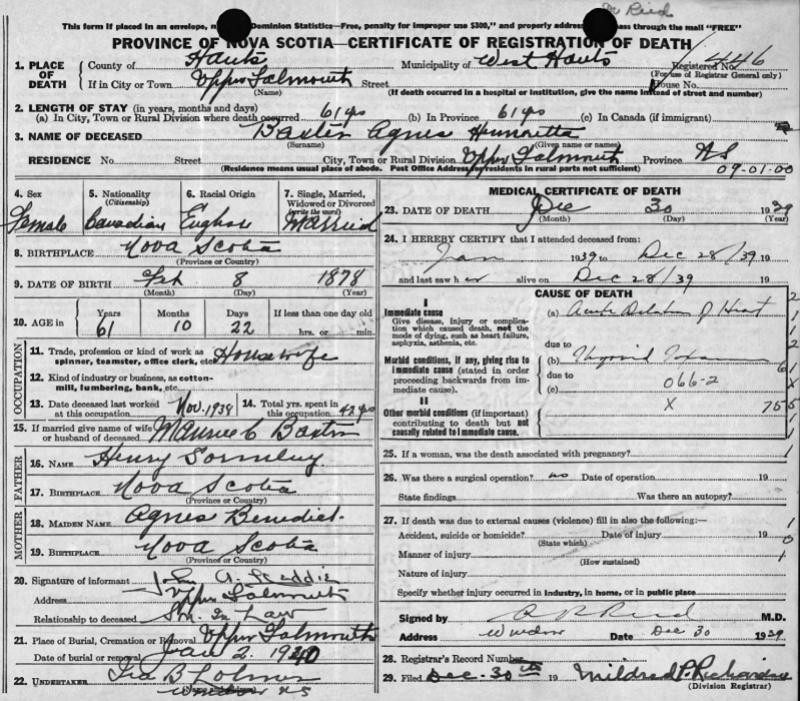 Dr Reid
This form if placed in an envelope, Dominion Statistics—Free, penalty for improper use $300," and properly address pass through the mail "FREE"
PROVINCE OF NOVA SCOTIA—CERTIFICATE OF REGISTRATION OF DEATH
1. PLACE OF DEATH County of Hants Municipality of West Hants Registered No. 446
(For use of Registrar General only)
If in City or Town Upper Falmouth Street House No.
(Name) (If death occurred in a hospital or institution, give the name instead of street and number)
2. LENGTH OF STAY (in years, months and days)
(a) In City, Town or Rural Division where death occurred 61 yrs (b) In Province 61 yrs (c) In Canada (if immigrant)
3. NAME OF DECEASED Baxter Agnes Henrietta
(Surname) (Given name or names)
RESIDENCE No Street City, Town or Rural Division Upper Falmouth Province NS
(Residence means usual place of abode. Post Office Address residents in rural parts not sufficient) 09-01-00
4. Sex Female
5. Nationality (Citizenship) Canadian
6. Racial Origin English
7. Single, Married, Widowed or Divorced (write the word) Married
8. BIRTHPLACE Nova Scotia
(Province or Country)
9. DATE OF BIRTH Feb 8 1878
(Month) (Day) (Year)
10. AGE in Years Months Days If less than one day old
61 10 22 hrs. or min.
OCCUPATION
11. Trade, profession or kind of work as spinner, teamster, office clerk, etc. Housewife
12. Kind of industry or business, as cotton-mill, lumbering, bank, etc.
13. Date deceased last worked at this occupation Nov. 1938 14. Total yrs. spent in this occupation 42 yrs
15. If married give name of wife or husband of deceased Maurice C Baxter
FATHER
16. NAME Henry
17. BIRTHPLACE Nova Scotia
(Province or Country)
MOTHER
18. MAIDEN NAME Agnes Benedict
19. BIRTHPLACE Nova Scotia
(Province or Country)
20. Signature of informant John A.
Address Upper Falmouth
Relationship to deceased Son In Law
21. Place of Burial, Cremation or Removal Upper Falmouth
Date of burial or removal Jan 2. 1940
22. UNDERTAKER Ira B
Windsor NS
MEDICAL CERTIFICATE OF DEATH
23. DATE OF DEATH Dec 30 1939
(Month) (Day) (Year)
24. I HEREBY CERTIFY that I attended deceased from:
Jan 1939 to Dec 28/39 19
and last saw her alive on Dec 28/39 19
CAUSE OF DEATH
I
Immediate cause (a) Acute Dilatation of Heart
Give disease, injury or complication which caused death, not the mode of dying, such as heart failure, asphyxia, asthenia, etc.
due to
Morbid conditions, if any, giving rise to immediate cause (stated in order proceeding backwards from immediate cause).
(b) Thyroid
due to 066-2
(c)
X 75
II
Other morbid conditions (if important) contributing to death but not causally related to immediate cause.
25. If a woman, was the death associated with pregnancy?
26. Was there a surgical operation? no Date of operation 19
State findings Was there an autopsy?
27. If death was due to external causes (violence) fill in also the following:—
Accident, suicide or homicide? Date of injury 19
(State which)
Manner of injury
(How sustained)
Nature of injury
Specify whether injury occurred in industry, in home, or in public place
Signed by Reid M.D.
Address Windsor Date Dec 30 1939
28. Registrar's Record Number
29. Filed Dec. 30th 19 Mildred P. Richardson
(Division Registrar)